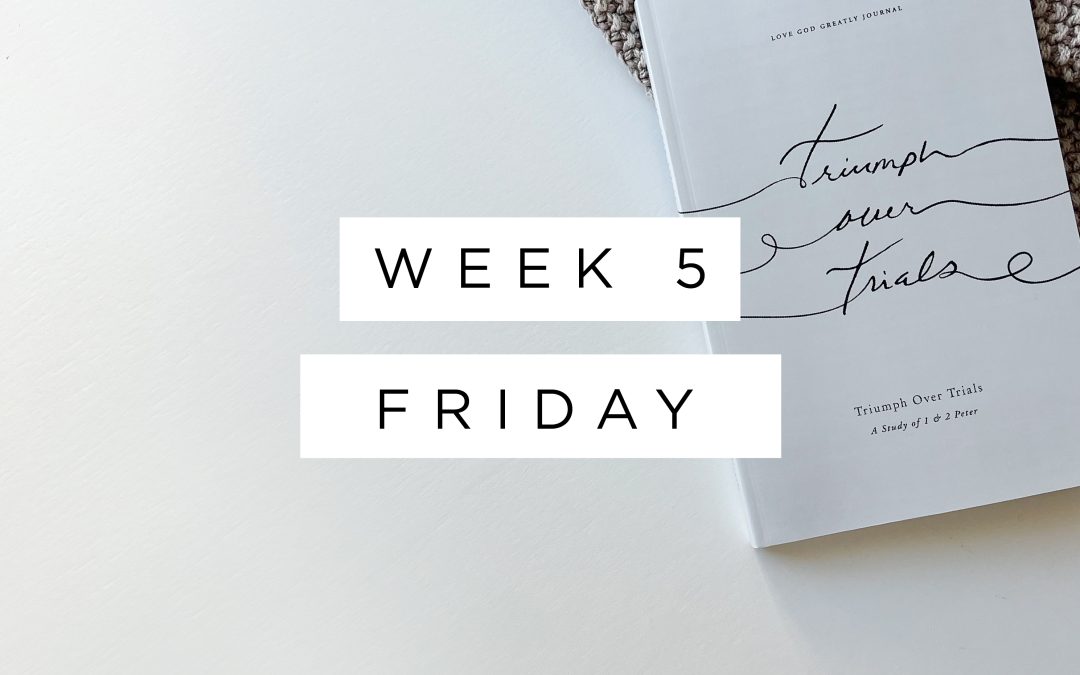 LOVE GOD GREATLY JOURNAL
Triumph
over
Trials
WEEK 5
FRIDAY
Triumph Over Trials
A Study of 1 & 2 Peter